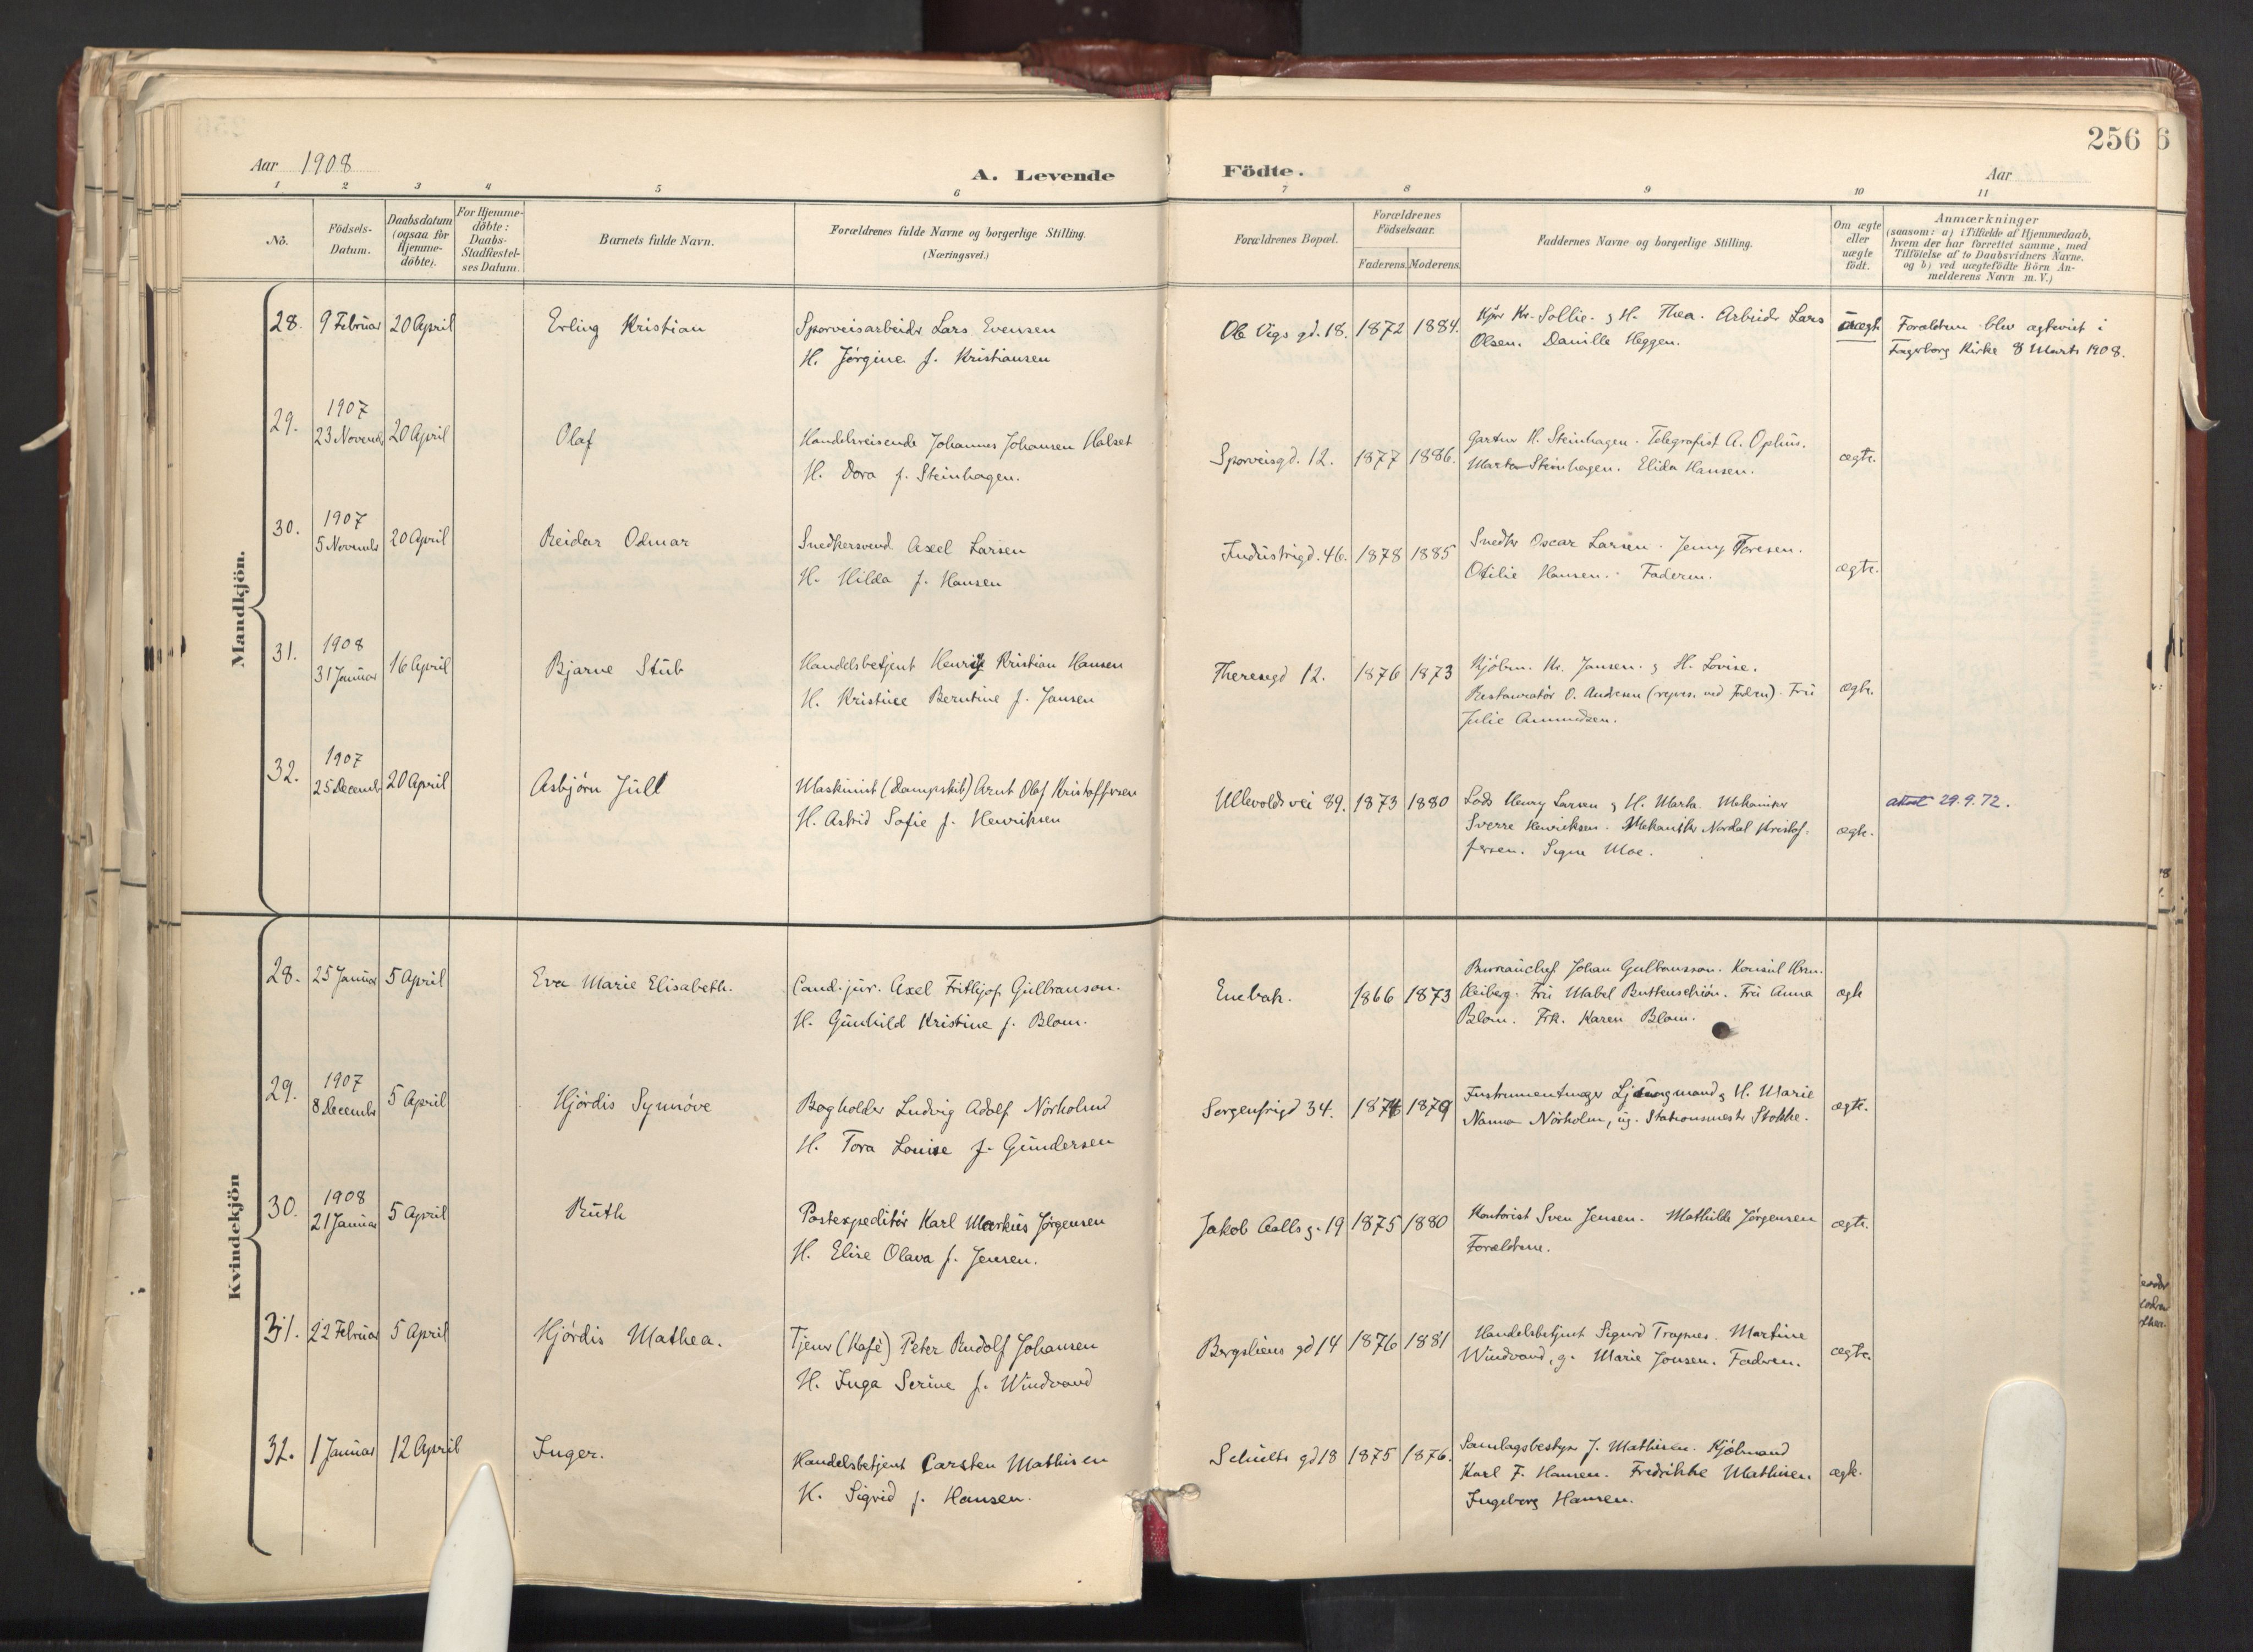 256
Aar 1908
A. Levende Födte.
Aar
1 2 3 4 5 6 7 8 9 10 11
No.
Födsels-Datum.
Daabsdatum (ogsaa for Hjemme-döbte).
For Hjemme-döbte: Daabs-Stadfæstel-ses Datum.
Barnets fulde Navn.
Forældrenes fulde Navne og borgerlige Stilling. (Næringsvei.)
Forældrenes Bopæl.
Forældrenes Födselsaar.
Faderens. Moderens.
Faddernes Navne og borgerlige Stilling.
Om ægte eller uægte födt.
Anmærkninger
(saasom: a) i Tilfælde af Hjemmedaab, hvem der har forrettet samme, med Tilföielse af to Daabsvidners Navne. og b) ved uægtefödte Börn An-melderens Navn m. V.)
Mandkjön.
28. 9 Februar 20 April Erling Kristian
Sporveisarbeider Lars Evensen
H. Jörgine f. Kristiansen
Ole Vigs gd. 18. 1872 1884.
Kjör Kr. Sollie. & H. Thea. Arbeider Lars
Olsen. Danille Heggen.
uægte
Forældrene blev ægteviet i
Fagerborg Kirke 8 Marts 1908.
29. 1907
23 November 20 April Olaf
Handelsreisende Johannes Johansen Halset
H. Dora f. Steinhagen.
Sporveisgd. 12. 1877 1886.
Gartner H. Steinhagen. Telegrafist A. Ophus.
Marta Steinhagen. Elida Hansen.
ægte.
30. 1907
5 November 20 April Reidar Odmar
Snedkersvend Axel Larsen
H. Hilda f. Hansen
Industrigd. 46. 1878 1885
Snedker Oscar Larsen. Jenny Toresen.
Otilie Hansen. Faderen.
ægte.
31. 1908
31 Januar 16 April Bjarne Stub
Handelsbetjent Henrij Kristian Hansen
H. Kristine Berntine f. Jansen
Theresegd 12. 1876 1873
Kjöbm. Kr. Jansen. & H. Lovise.
Restauratör O. Andresen (repres. ved Faderen). Fru
Julie Amundsen.
ægte.
32. 1907
25 December 20 April Asbjörn Jull
Maskinist (Dampskib) Arnt Olaf Kristoffersen
H. Astrid Sofie f. Henriksen
Ullevoldsvei 89. 1873 1880
Lods Henry Larsen & H. Marta. Mekaniker
Sverre Henriksen. Mekaniker Nordal Kristof-
fersen. Signe Moe.
ægte.
attest 29.9.72.
Kvindekjön
28. 25 Januar 5 April Eva Marie Elisabeth.
Cand. jur. Axel Frithjof Gulbranson.
H. Gunhild Kristine f. Blom.
Enebak. 1866 1873
Bureauchef Johan Gulbransson. Konsul Hrm.
Heiberg. Fru Mabel Buttenschiön. Fru Anna
Blom. Frk. Karen Blom.
ægte
29. 1907
8 December 5 April Hjördis Synnöve
Bogholder Ludvig Adolf Nörholm
H. Tora Louise f. Gundersen
Sorgenfrigd 34. 1874 1879
Instrumentmager Ljungmann & H. Marie
Nanna Nörholm, ug. Stationsmester Stokke.
ægte.
30. 1908
21 Januar 5 April Ruth
Postexpeditör Karl Markus Jörgensen
H. Elise Olava f. Jensen.
Jakob Aalls g. 19 1875 1880
Kontorist Sven Jensen. Mathilde Jörgensen
Forældrene.
ægte.
31. 22 Februar 5 April Hjördis Mathea.
Tjener (Kafé) Peter Rudolf Johansen
H. Inga Serine f. Windvand
Bergsliens gd 14 1876 1881
Handelsbetjent Sigurd Trapnes. Martine
Windvand, g. Marie Jonsen. Faderen.
ægte.
32. 1 Januar 12 April Inger.
Handelsbetjent Carsten Mathisen
H. Sigrid f. Hansen.
Schults gd 18 1875 1876.
Samlagsbestyrer J. Mathisen. Kjölmand
Karl F. Hansen. Fredrikke Mathisen
Ingeborg Hansen.
ægte.